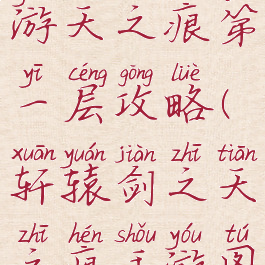 游天之痕第
yī céng gōng lüè
一层攻略(
xuān yuán jiàn zhī tiān
轩辕剑之天
zhī hén shǒu yóu tú
之痕手游图